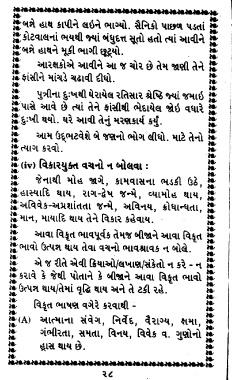 બન્ને હાથ કાપીને લઇને ભાગ્યો. સૈનિકો પાછળ પડતાં
કોટવાલના ભયથી જ્યાં બંધુદત્ત સૂતો હતો ત્યાં આવીને
બન્ને હાથને મૂકી ભાગી છૂટ્યો.
આરક્ષકોએ આવીને આ જ ચોર છે તેમ જાણી તેને
ફાંસીને માંચડે ચઢાવી દીધો.
પુત્રીના દુઃખથી ઘેરાયેલ રતિસાર શ્રેષ્ઠિ જ્યાં જમાઇ
પાસે આવે છે ત્યાં તેને ફાંસીથી ભેદાયેલ જોઇ વધારે
દુઃખી થયો. ઘરે આવી તેનું મરણકાર્ય કર્યું.
આમ ઉદ્ભટવેશે બે જણનો ભોગ લીધો. માટે તેનો
ત્યાગ કરવો.
(iv) વિકારયુક્ત વચનો ન બોલવા :
જેનાથી મોહ જાગે, કામવાસના ભડકી ઉઠે,
હાસ્યાદિ થાય, રાગ-દ્વેષ જન્મે, વ્યામોહ થાય,
અવિવેક-અપ્રશાંતતા જન્મે, અવિનય, ક્રોધાન્ધતા,
માન, માયાદિ થાય તેને વિકાર કહેવાય.
આવા વિકૃત ભાવપૂર્વક તેમજ બીજાને આવા વિકૃત
ભાવો ઉત્પન્ન થાય તેવા વચનો ભાવશ્રાવક ન બોલે.
એ જ રીતે એવી ક્રિયાઓ/લખાણ/સંકેતો ન કરે - ન
કરાવે કે જેથી પોતાને કે બીજાને આવા વિકૃત ભાવો
ઉત્પન્ન થાય/તેમાં વૃદ્ધિ થાય અને તે ટકી રહે.
વિકૃત ભાષણ વગેરે કરવાથી -
(A) આત્માના સંવેગ, નિર્વેદ, વૈરાગ્ય, ક્ષમા,
ગંભીરતા, સમતા, વિનય, વિવેક વ. ગુણોનો
હ્રાસ થાય છે.
૨૮